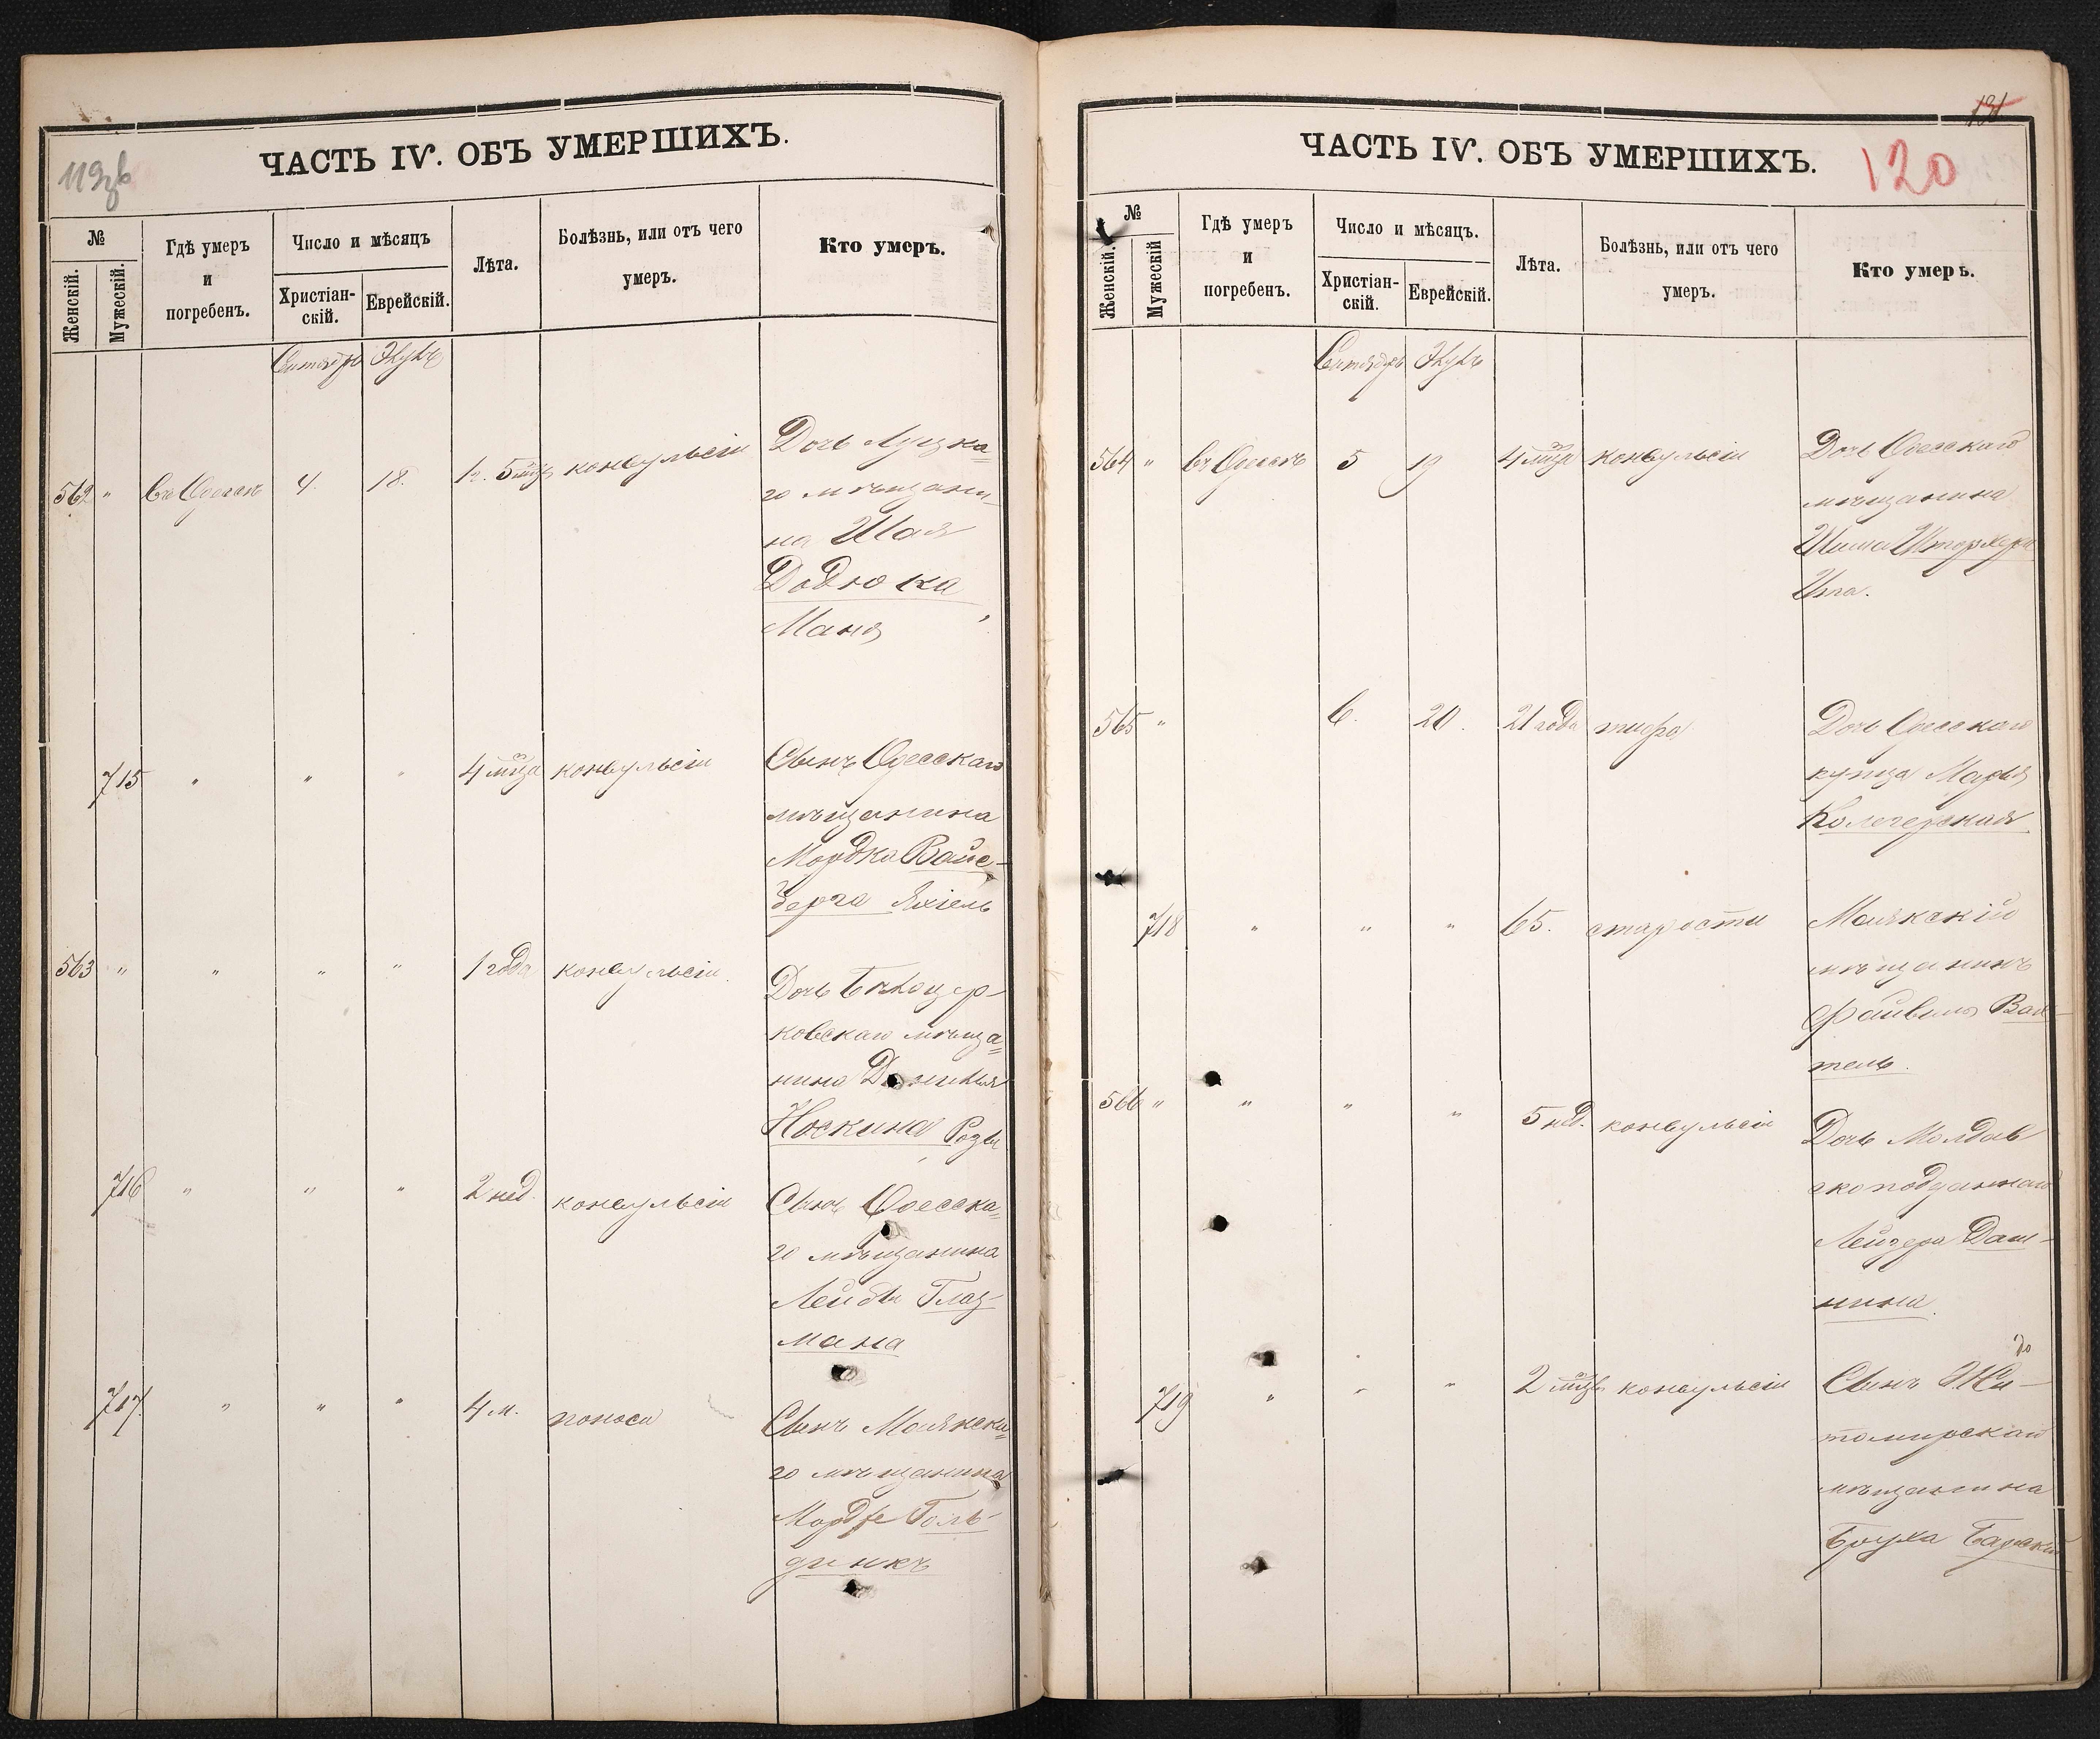 119зв
ЧАСТЬ IV. ОБЪ УМЕРШИХЪ.
№
Женскій.
Мужескій.
Гдѣ умеръ
и
погребенъ.
Число и мѣсяцъ
Христіан-
скій.
Еврейскій.
Лѣта.
Болѣзнь, или отъ чего
умеръ.
Кто умеръ.
Сентябрь
562 " Въ Одессѣ 4. 18. 1 г. 5 мцъ конвульсіи Дочь Луцка=
го мѣщани-
на Шая
Довдюка
Маня
715 " " " 4 мца конвульсіи Сынъ Одесскаго
мѣщанина
Мордко Вайс-
берга Яхіель
563 " " " " 1 года конвульсіи Дочь Бѣлоцер-
ковскаго мѣща=
нина Даніила
Носкина Розы
716 " " " 2 нед. конвульсіи Сынъ Одесска=
го мѣщанина
Лейбы Глаз-
мана
717. " " " 4 м. поноса Сынъ Маякска=
го мѣщанина
Мордхе Голь-
динкъ
131
120
ЧАСТЬ IV. ОБЪ УМЕРШИХЪ.
№
Женскій.
Мужескій
Гдѣ умеръ
и
погребенъ.
Число и мѣсяцъ.
Христіан-
скій.
Еврейскій.
Лѣта.
Болѣзнь, или отъ чего
умеръ.
Кто умеръ.
Сентябрь
564 " Въ Одессѣ 5 19 4 мца конвульсіи Дочь Одесскаго
мѣщанина
565 " 6. 20. 21 года тифа Дочь Одесскаго
купца Марья
718 " " " 65. старости Маякскій
мѣщанинъ
Файвель Вай-
тель.
566 " " " " 5 нед. конвульсіи Дочь Молдав
скоподданнаго
Лейзера Даш-
нина.
719 " " " 2 мцъ конвульсіи Сынъ Жи-
томирскаго
мѣщанина
Боруха